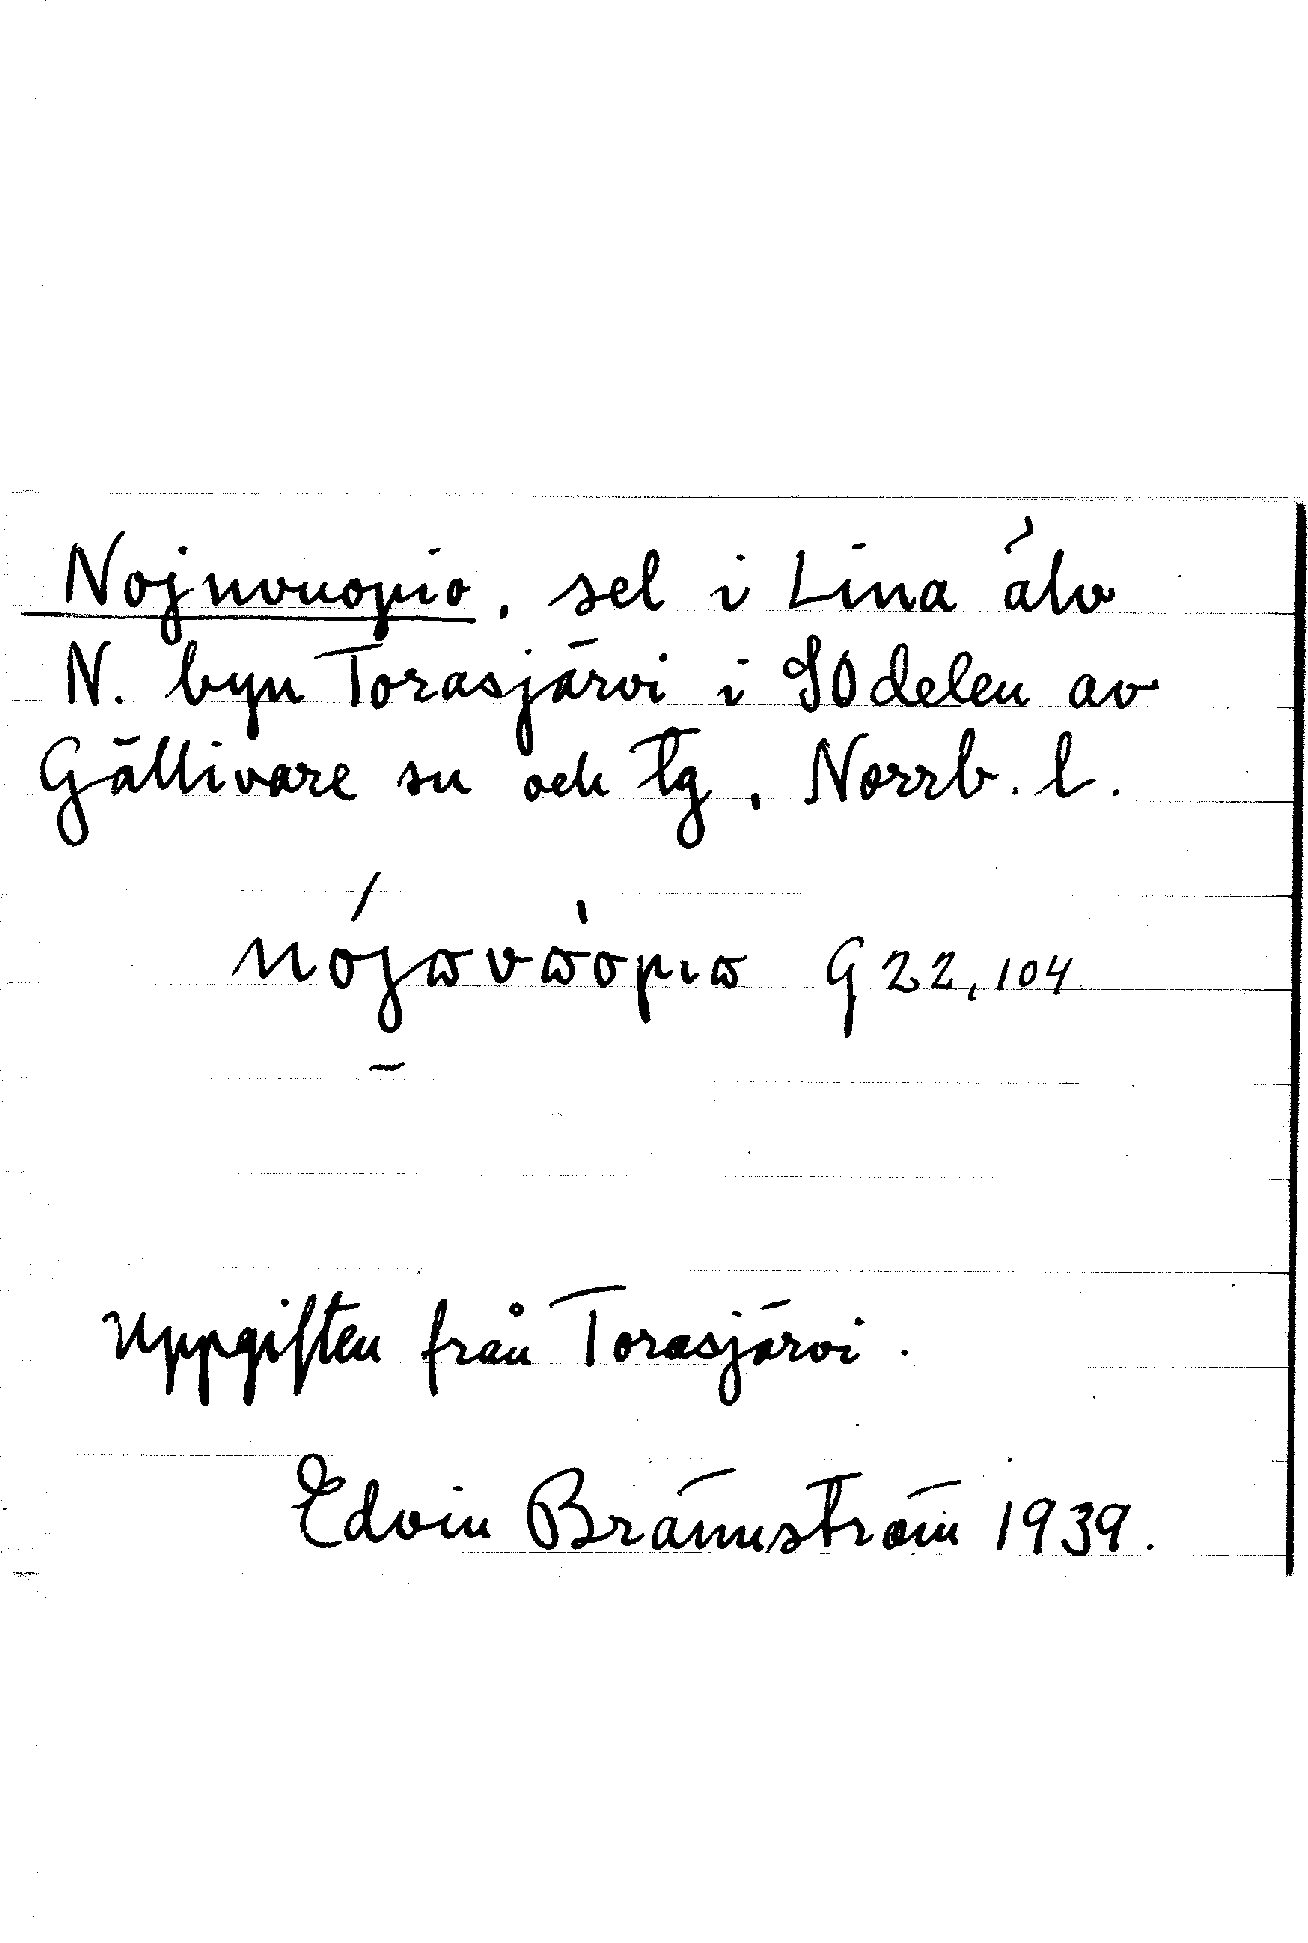 Nojuvuopio, sel i Lina älv
N. byn Torasjärvi i SO delen av
Gällivare sn och tg, Norrb. l.
G 22, 104
Uppgiften från Torasjärvi.
Edvin Brännström 1939.